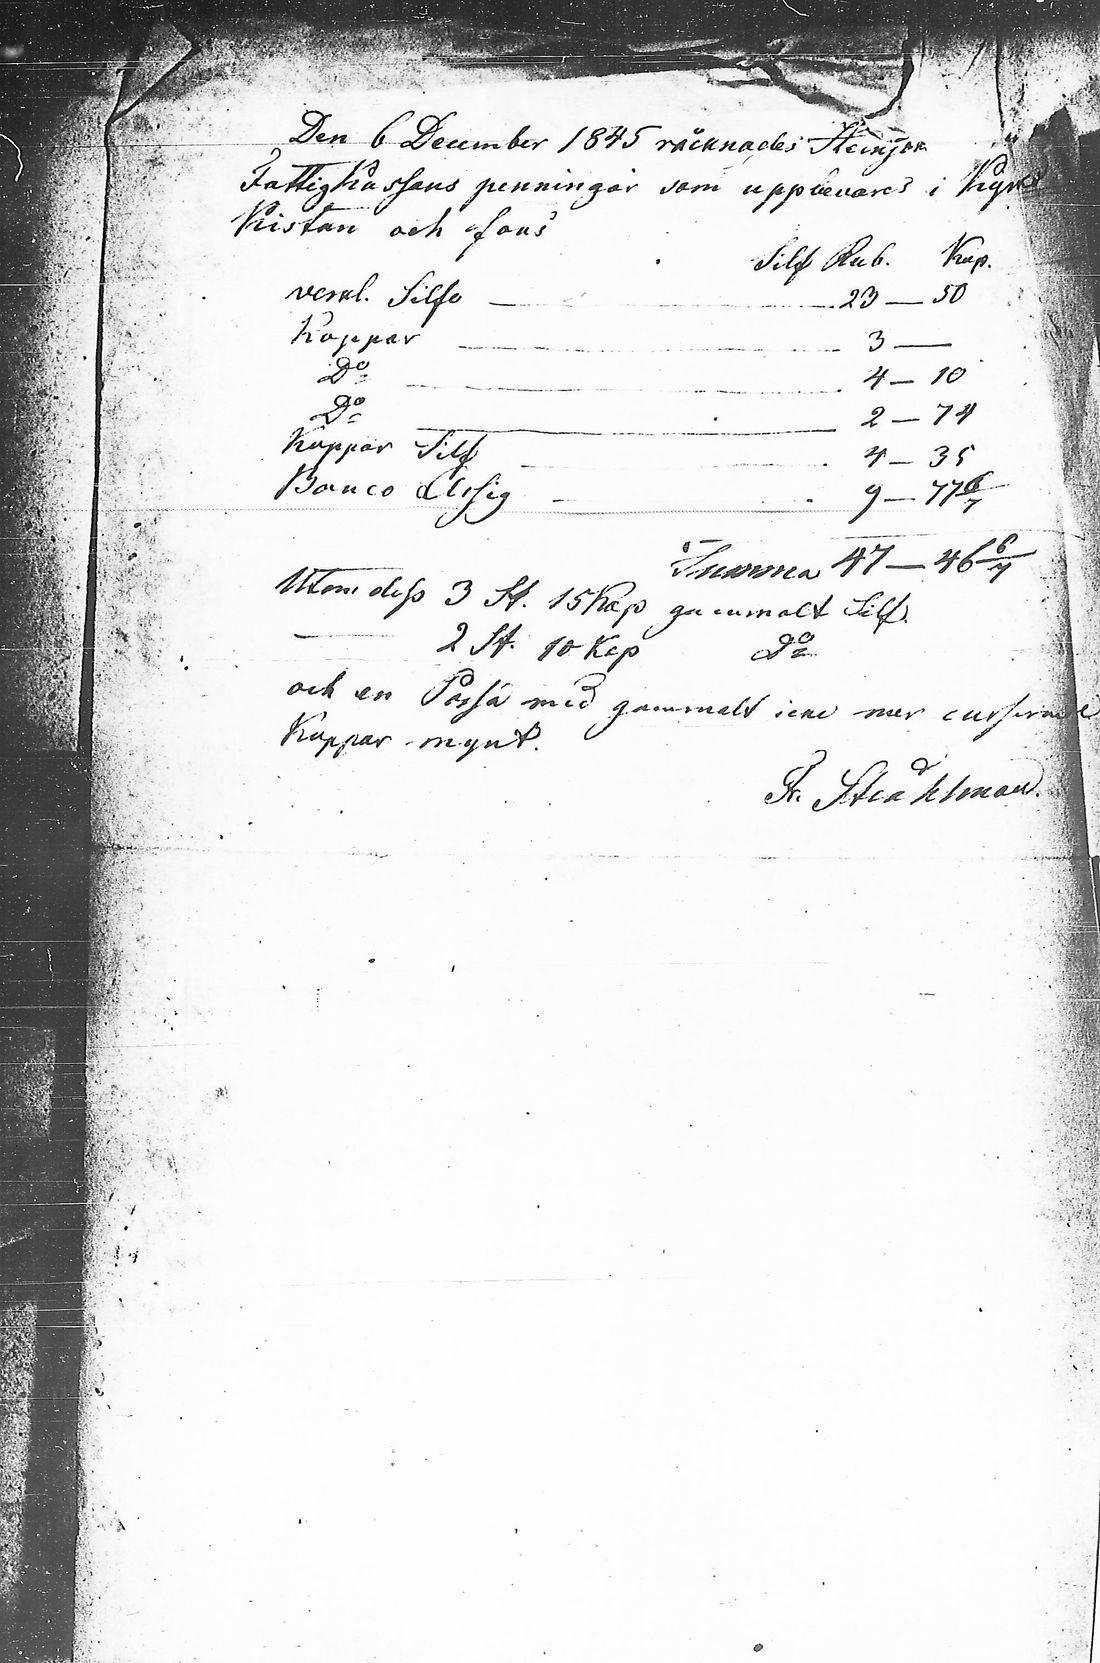 Den 6 December 1845 räcknades
Fattighassans penningar som uppbevaras i Kyrk
Kistan och fans
Silf Rub. Kop.
verkl. Silfe 23 — 50
Koppar 3 —
Do 4 — 10
Do 2 — 74
Koppar Silf 4 — 35
Banco Assig 9 — 77 6/7
Summa 47 — 46 6/7
Utom dess 3 St. 15 Kop gammalt Silf.
— 2 St. 10 Kop Do
och en Påssa med gammalt icke mer
Koppar mynt.
Fr. Stråhlman.